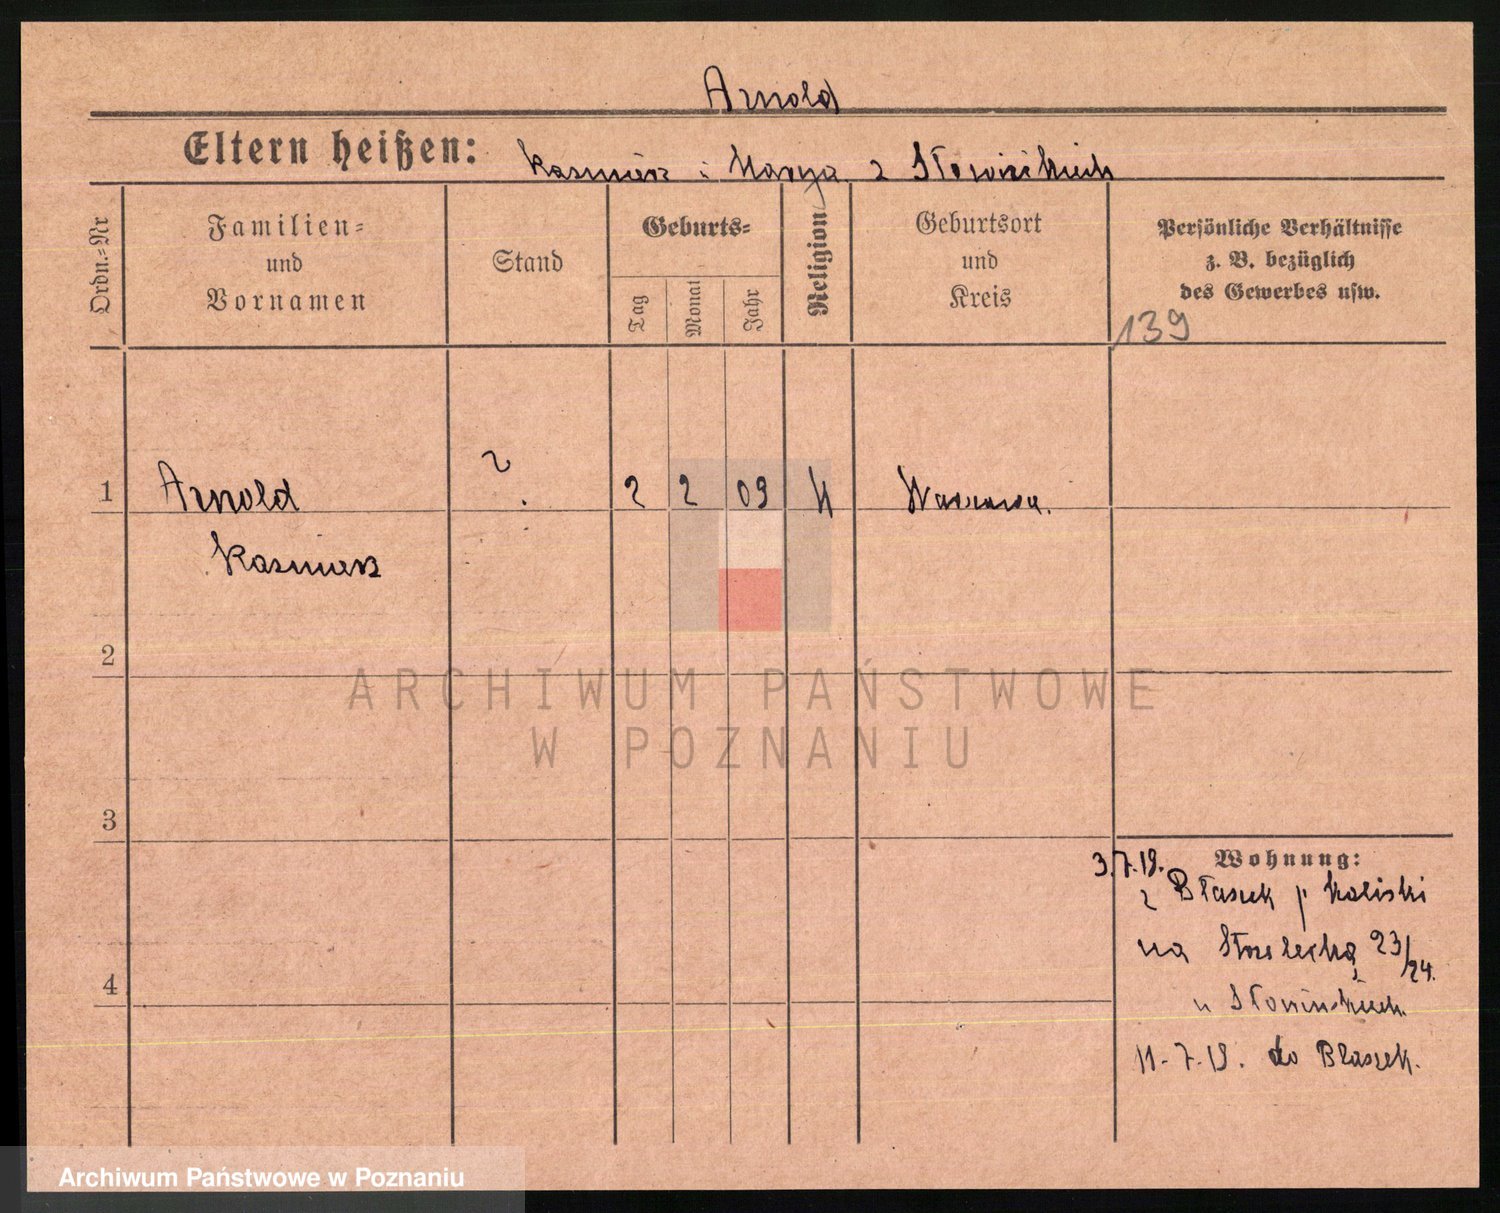 Arnold
Eltern heißen: Kazimierz i Marya z Słowińskich
Ordn.-Nr
Familien-
und
Vornamen
Stand
Geburts-
Tag
Monat
Jahr
Religion
Geburtsort
und
Kreis
Persönliche Verhältnisse
z. B. bezüglich
des Gewerbes usw.
139
1 Arnold ? 2 2 09 K Warszawa.
Kazimierz
2
ARCHIWUM PAŃSTWOWE
W POZNANIU
3
3.7.19. Wohnung:
z Błaszek p Kaliski
na Strzelecką 23/24.
4
u Słowińskich.
11.-7.19. do Błaszek.
Archiwum Państwowe w Poznaniu